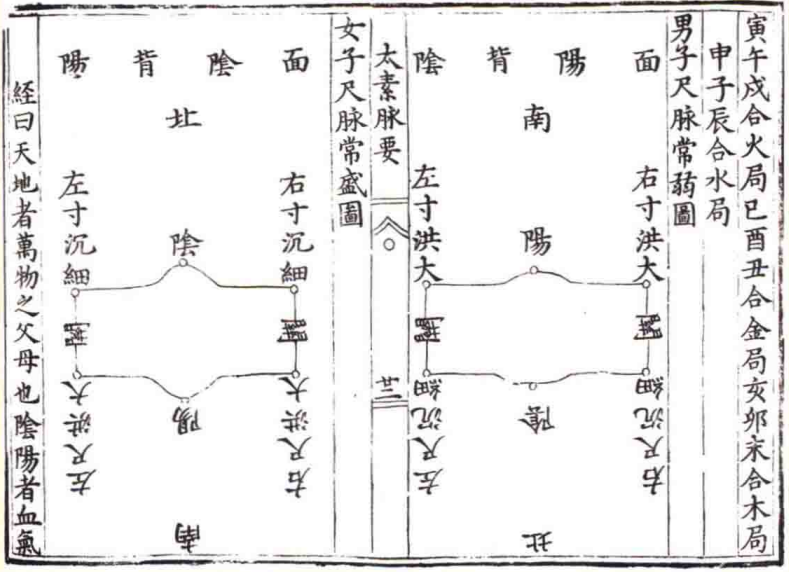 寅午戌合火局巳酉丑合金局亥卯未合木局
申子辰合水局
男子尺脉常弱圖
面陽背陰
南
陽
右寸洪大
左寸洪大
關
關
右尺沉細
左尺沉細
陰
北
太素脉要
廿三
女子尺脉常盛圖
面陰背陽
北
陰
右寸沉細
左寸沉細
關
關
右尺洪大
左尺洪大
陽
南
経曰天地者萬物之父母也陰陽者血氣